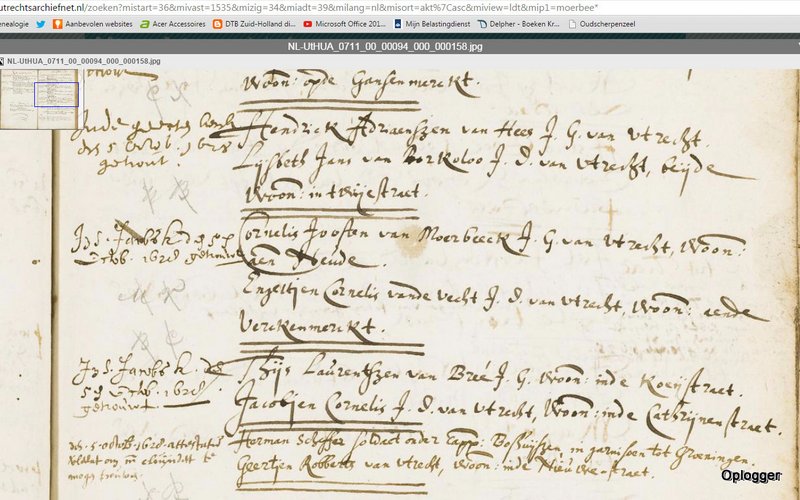 utrechtsarchiefnet.nl/zoeken?mistart=36&mivast=1535&mizig=34&miadt=39&milang=nl&misort=akt%7Casc&miview=ldt&mip1=moerbee*
enealogie
Aanbevolen websites
Acer Accessoires
DTB Zuid-Holland di...
Microsoft Office 201...
Mijn Belastingdienst
Delpher - Boeken Kr...
Oudscherpenzeel
NL-UtHUA_0711_00_00094_000_000158.jpg
NL-UtHUA_0711_00_00094_000_000158.jpg
Woon: opde Gansenmerckt.
Inde geerten kerk
den 5 octob. 1628
getrout.
Hendrick Adriaenszen van Hees J. G. van Utrecht.
Lijsbeth Jans van Borkoloo J. D. van Utrecht, beijde
Woon: in twijestraet.
In S. Jacobs k. den 5
Octob. 1628 getrouwt
Cornelis Joosten van Moerbeeck J. G. van Utrecht, Woon:
aen Neude.
Engeltjen Cornelis vande Vecht J. D. van Utrecht, Woon: aende
Verckenmerckt.
In S. Jacobs k. de
5 Octob. 1628
getrouwt.
Thijs Laurentszen van Breé J. G. Woon: inde Koeijstraet.
Jacobjen Cornelis J. D. van Utrecht, Woon: inde Cathrijnenstraet.
den 5 octob 1628 attestatie
om te
mogen trouwen.
Herman Scheffer soldaet onder Capp: Boshuijsen, in garnisoen tot Groeningen.
Geertjen Robberts van Utrecht, Woon: inde Nieuwe straet.
Oplogger